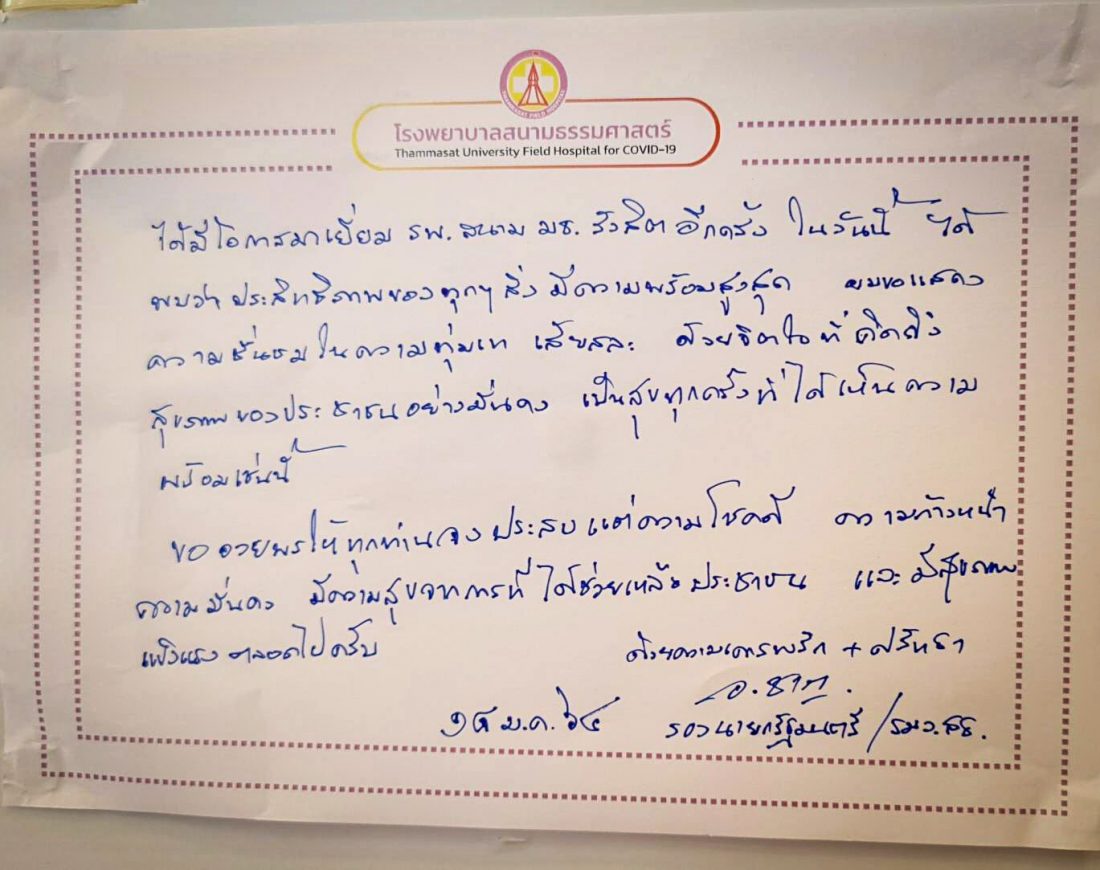 THAMMASAT FIELD HOSPITAL
โรงพยาบาลสนามธรรมศาสตร์
Thammasat University Field Hospital for COVID-19
ได้มีโอการมาเยี่ยม รพ. สนาม มธ. รังสิต อีกครั้ง ในวันนี้ ได้
พบว่า ประสิทธิภาพของทุกๆ สิ่ง มีความพร้อมสูงสุด ผมขอแสดง
ความชื่นชมในความทุ่มเท เสียสละ ด้วยจิตใจที่คิดถึง
สุขภาพของประชาชนอย่างมั่นคง เป็นสุขทุกครั้งที่ได้เห็นความ
พร้อมเช่นนี้
ขออวยพรให้ทุกท่านจงประสบแต่ความโชคดี ความก้าวหน้า
ความมั่นคง มีความสุขจากการที่ได้ช่วยเหลือประชาชน และมีสุขภาพ
แข็งแรงตลอดไปครับ
ด้วยความเคารพรัก + ศรัทธา
๑๘ ม.ค. ๖๔ รองนายกรัฐมนตรี / รมว. สธ.